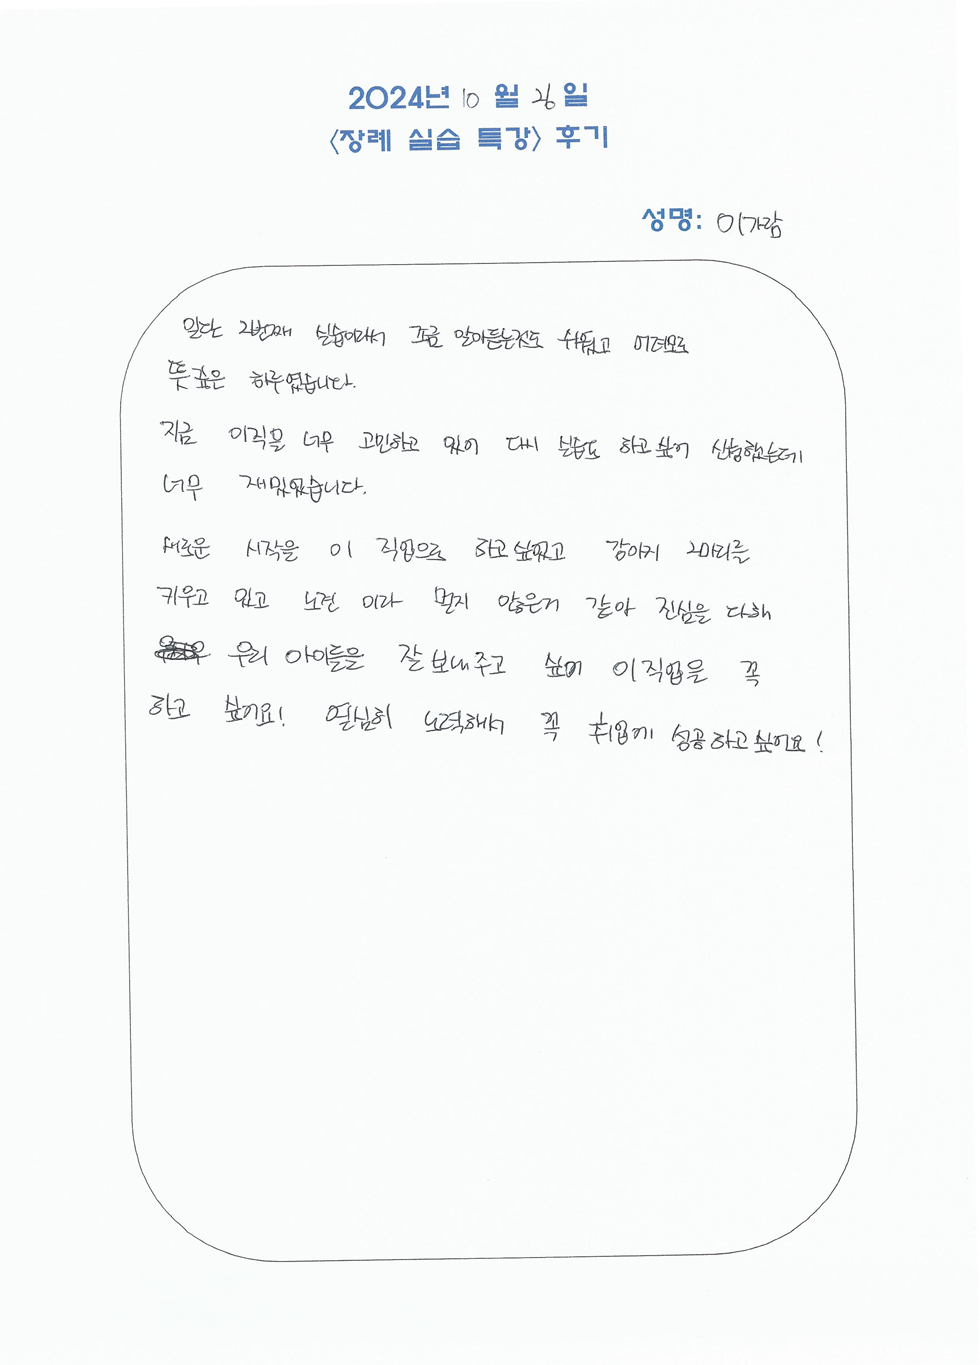 2024년 10 월 26 일
<장례 실습 특강> 후기
성명: 이가람
일단 2번째 실습이라서 조금 알아듣는것도 쉬웠고 여러모로
뜻깊은 하루였습니다.
지금 이직을 너무 고민하고 있어 다시 실습도 하고싶어 신청했는데
너무 재밌었습니다.
새로운 시작을 이 직업으로 하고싶었고 강아지 2마리를
키우고 있고 노견 이라 멀지 않은거 같아 진심을 다해
우리 아이들을 잘 보내주고 싶어 이직업을 꼭
하고 싶어요! 열심히 노력해서 꼭 취업에 성공하고싶어요!